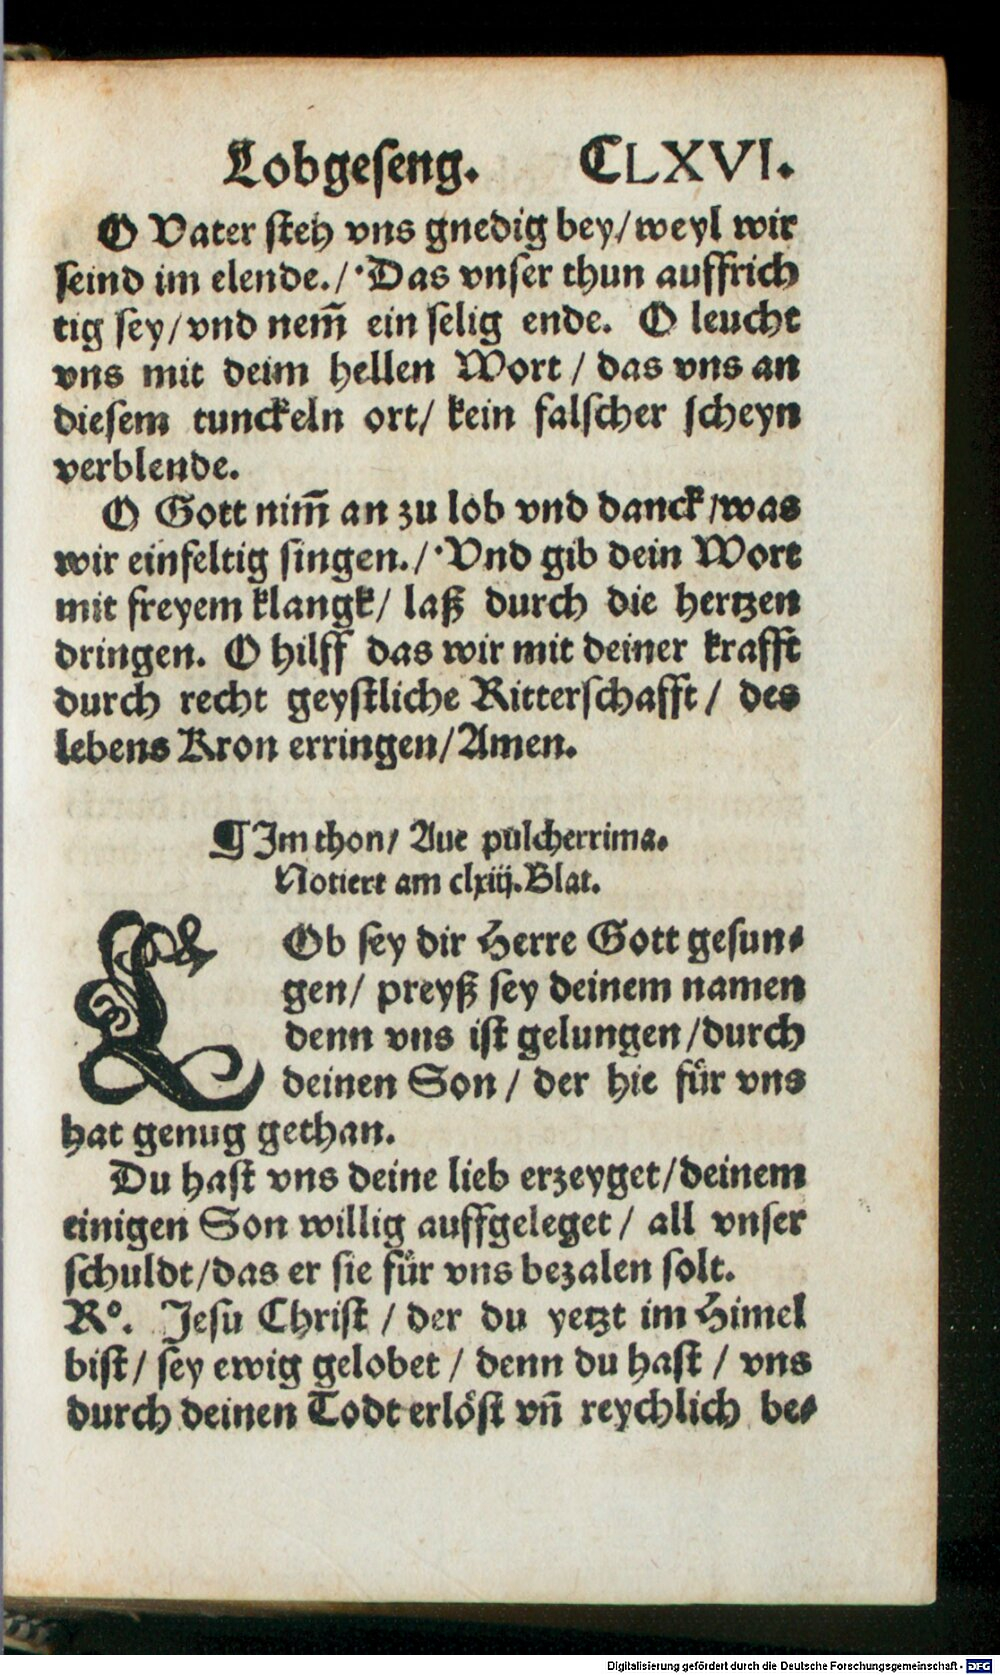 Lobgeseng. CLXVI.
O Vater steh vns gnedig bey/ weyl wir
seind im elende./ ·Das vnser thun auffrich
tig sey/ vnd nem̃ ein selig ende. O leucht
vns mit deim hellen Wort / das vns an
diesem tunckeln ort/ kein falscher scheyn
verblende.
O Gott nim̃ an zu lob vnd danck /was
wir einfeltig singen./ ·Vnd gib dein Wort
mit freyem klangk/ laß durch die hertzen
dringen. O hilff das wir mit deiner krafft
durch recht geystliche Ritterschafft / des
lebens Kron erringen/ Amen.
¶ Im thon/ Aue pulcherrima.
Notiert am clxiij. Blat.
LOb sey dir Herre Gott gesun⸗
gen/ preyß sey deinem namen
denn vns ist gelungen /durch
deinen Son / der hie für vns
hat genug gethan.
Du hast vns deine lieb erzeyget/ deinem
einigen Son willig auffgeleget / all vnser
schuldt /das er sie für vns bezalen solt.
Rº. Jesu Christ / der du yetzt im Himel
bist/ sey ewig gelobet / denn du hast / vns
durch deinen Todt erlöst vñ reychlich be⸗
Digitalisierung gefördert durch die Deutsche Forschungsgemeinschaft - DFG